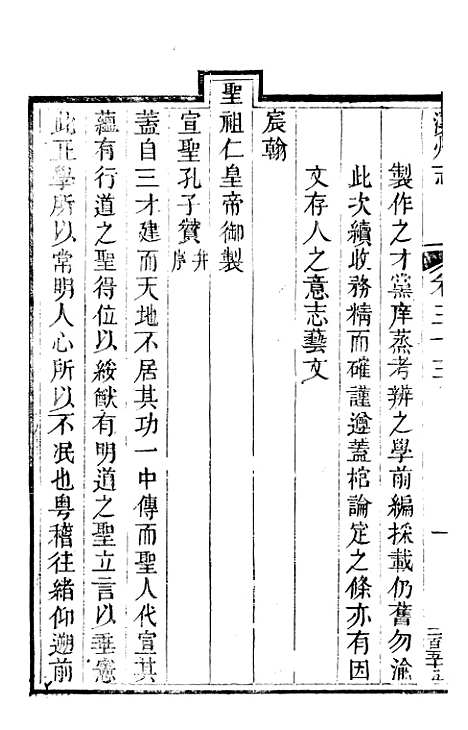 州志 卷三十三 一
製作之才黨庠蒸考辨之學前編採載仍舊勿淪
此次續收務精而確謹遵蓋棺論定之條亦有因
文存人之意志藝文
宸翰
聖祖仁皇帝御製
宣聖孔子贊并序
蓋自三才建而天地不居其功一中傳而聖人代宣其
蘊有行道之聖得位以綏猷有明道之聖立言以垂憲
此正學所以常明人心所以不泯也粵稽往緒仰遡前